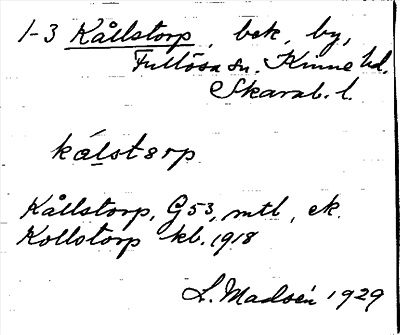 1-3 Kållstorp, bek. by,
Fullösa sn. Kinne hd.
Skarab. l.
kålstorp
Kållstorp, G53, mtl, ek.
Kollstorp kb. 1918
L. Madsén 1929